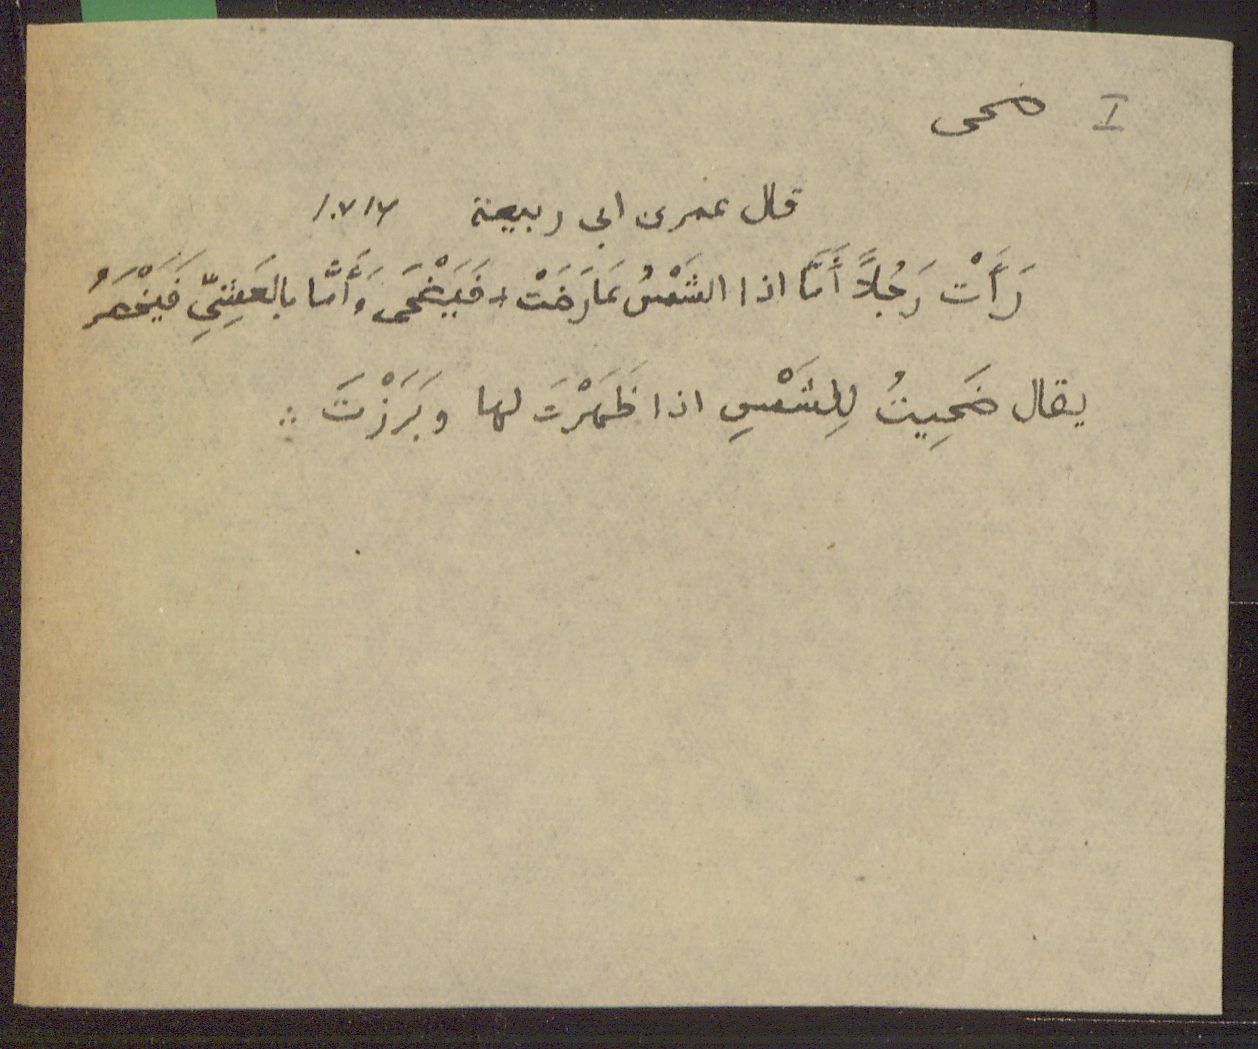 I ضحى
قال عمر بن ابى ربيعة
رَأَتْ رَجُلاً أَمَّا اذا الشَّمْسُ عَارَضَتْ * فَيَضْحَى وَأَمَّا بالعَشِىِّ فَيَخْصَرُ
يقال ضَحِيتُ لِلشَّمْسِ اذا ظَهَرْتَ لها وبَرَزْتَ ∴